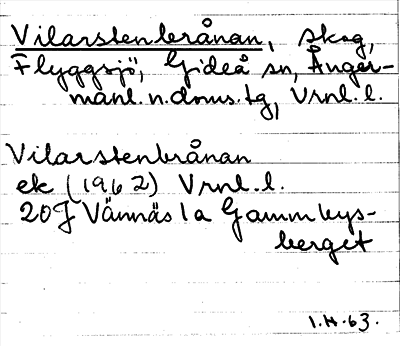 Vilarstenbrånan, skog,
Flyggsjö, Gideå sn, Ånger-
manl. n. doms. tg, Vrnl. l.
Vilarstenbrånan
ek (1962) Vrnl. l.
20J Vännäs 1a Gammbys-
berget
1.H.63.